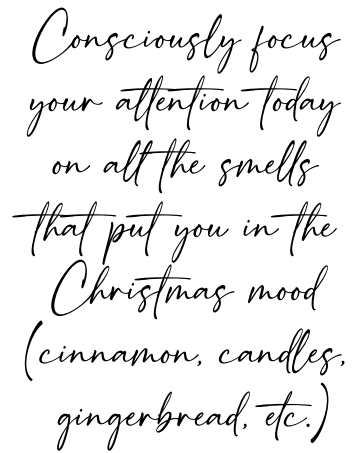 Consciously focus
your attention today
on all the smells
that put you in the
Christmas mood
(cinnamon, candles,
gingerbread, etc.)